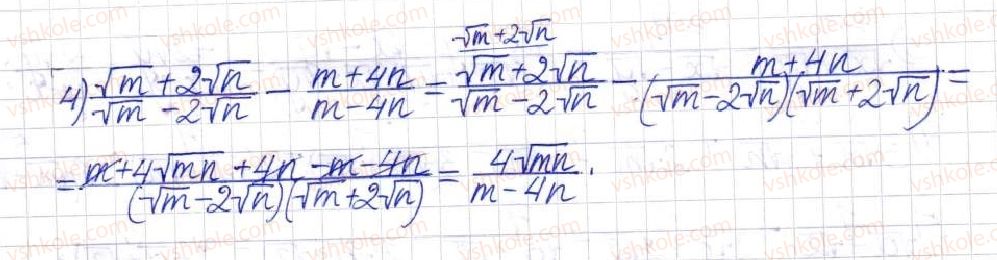 4) (√m + 2√n)/(√m - 2√n) - (m + 4n)/(m - 4n) = (√m + 2√n)/(√m - 2√n) ^(√m + 2√n) - (m + 4n)/((√m - 2√n)(√m + 2√n)) =
= (m + 4√mn + 4n - m - 4n)/((√m - 2√n)(√m + 2√n)) = 4√mn/(m - 4n).
vshkole.com